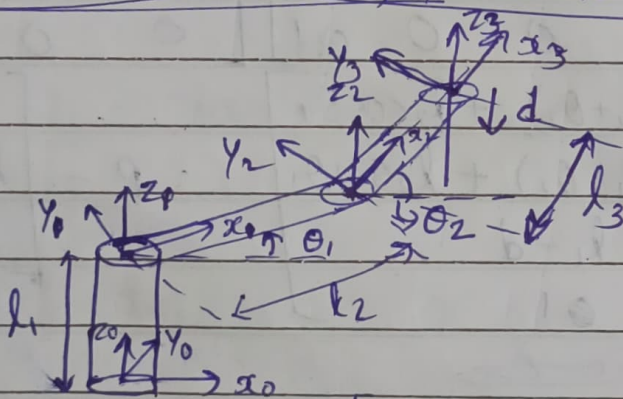 Z3
x3
Y3
Z2
d
Y2
x2
l3
θ2
Z1
Y1
x1
θ1
l2
l1
Z0
Y0
x0